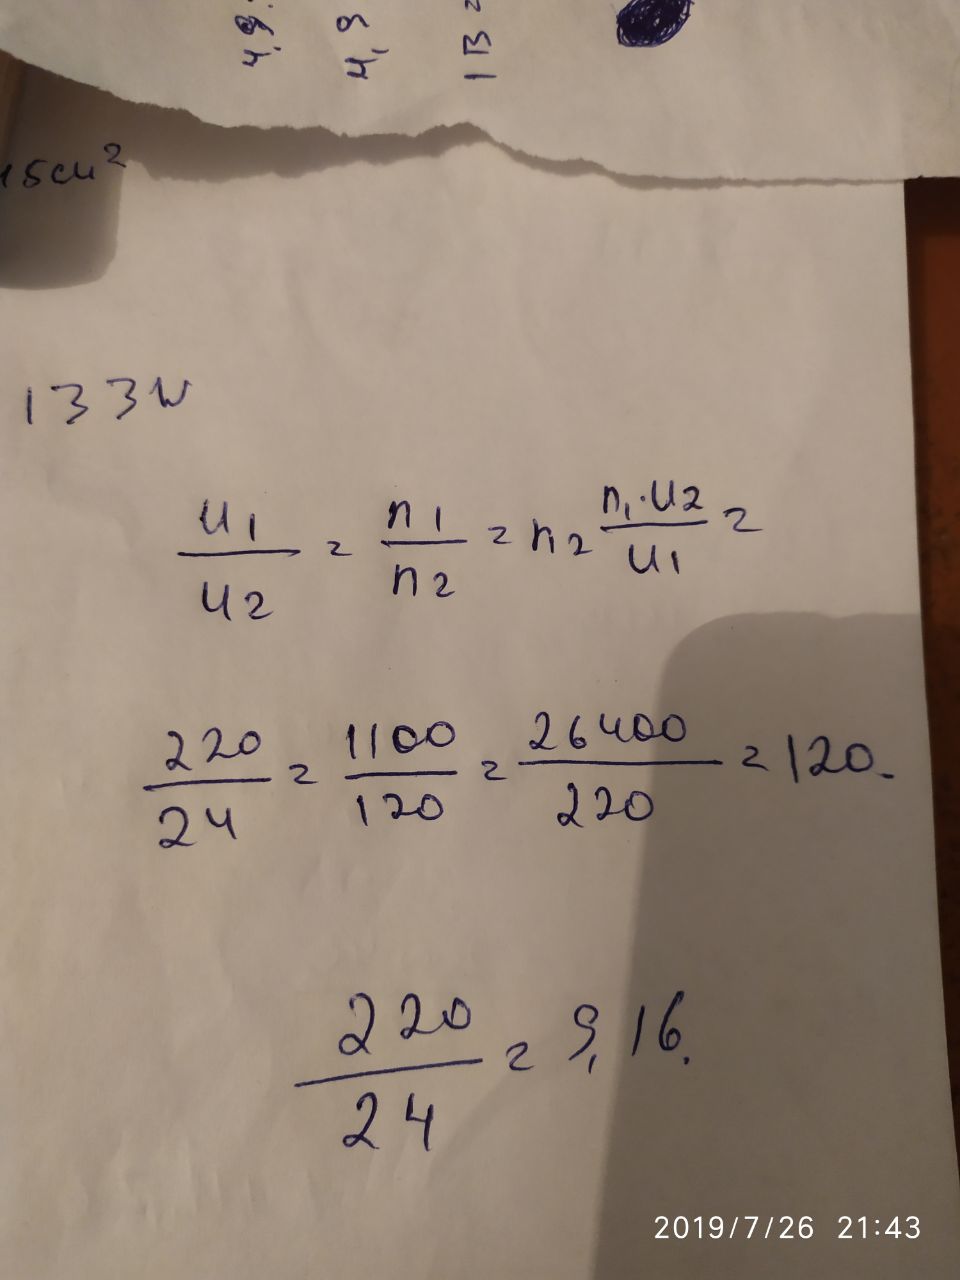 4,9
4,9
1 В =
15см²
133W
u1/u2 = n1/n2 = n2 n1·u2/u1 =
220/24 = 1100/120 = 26400/220 = 120.
220/24 = 9,16.
2019/7/26 21:43